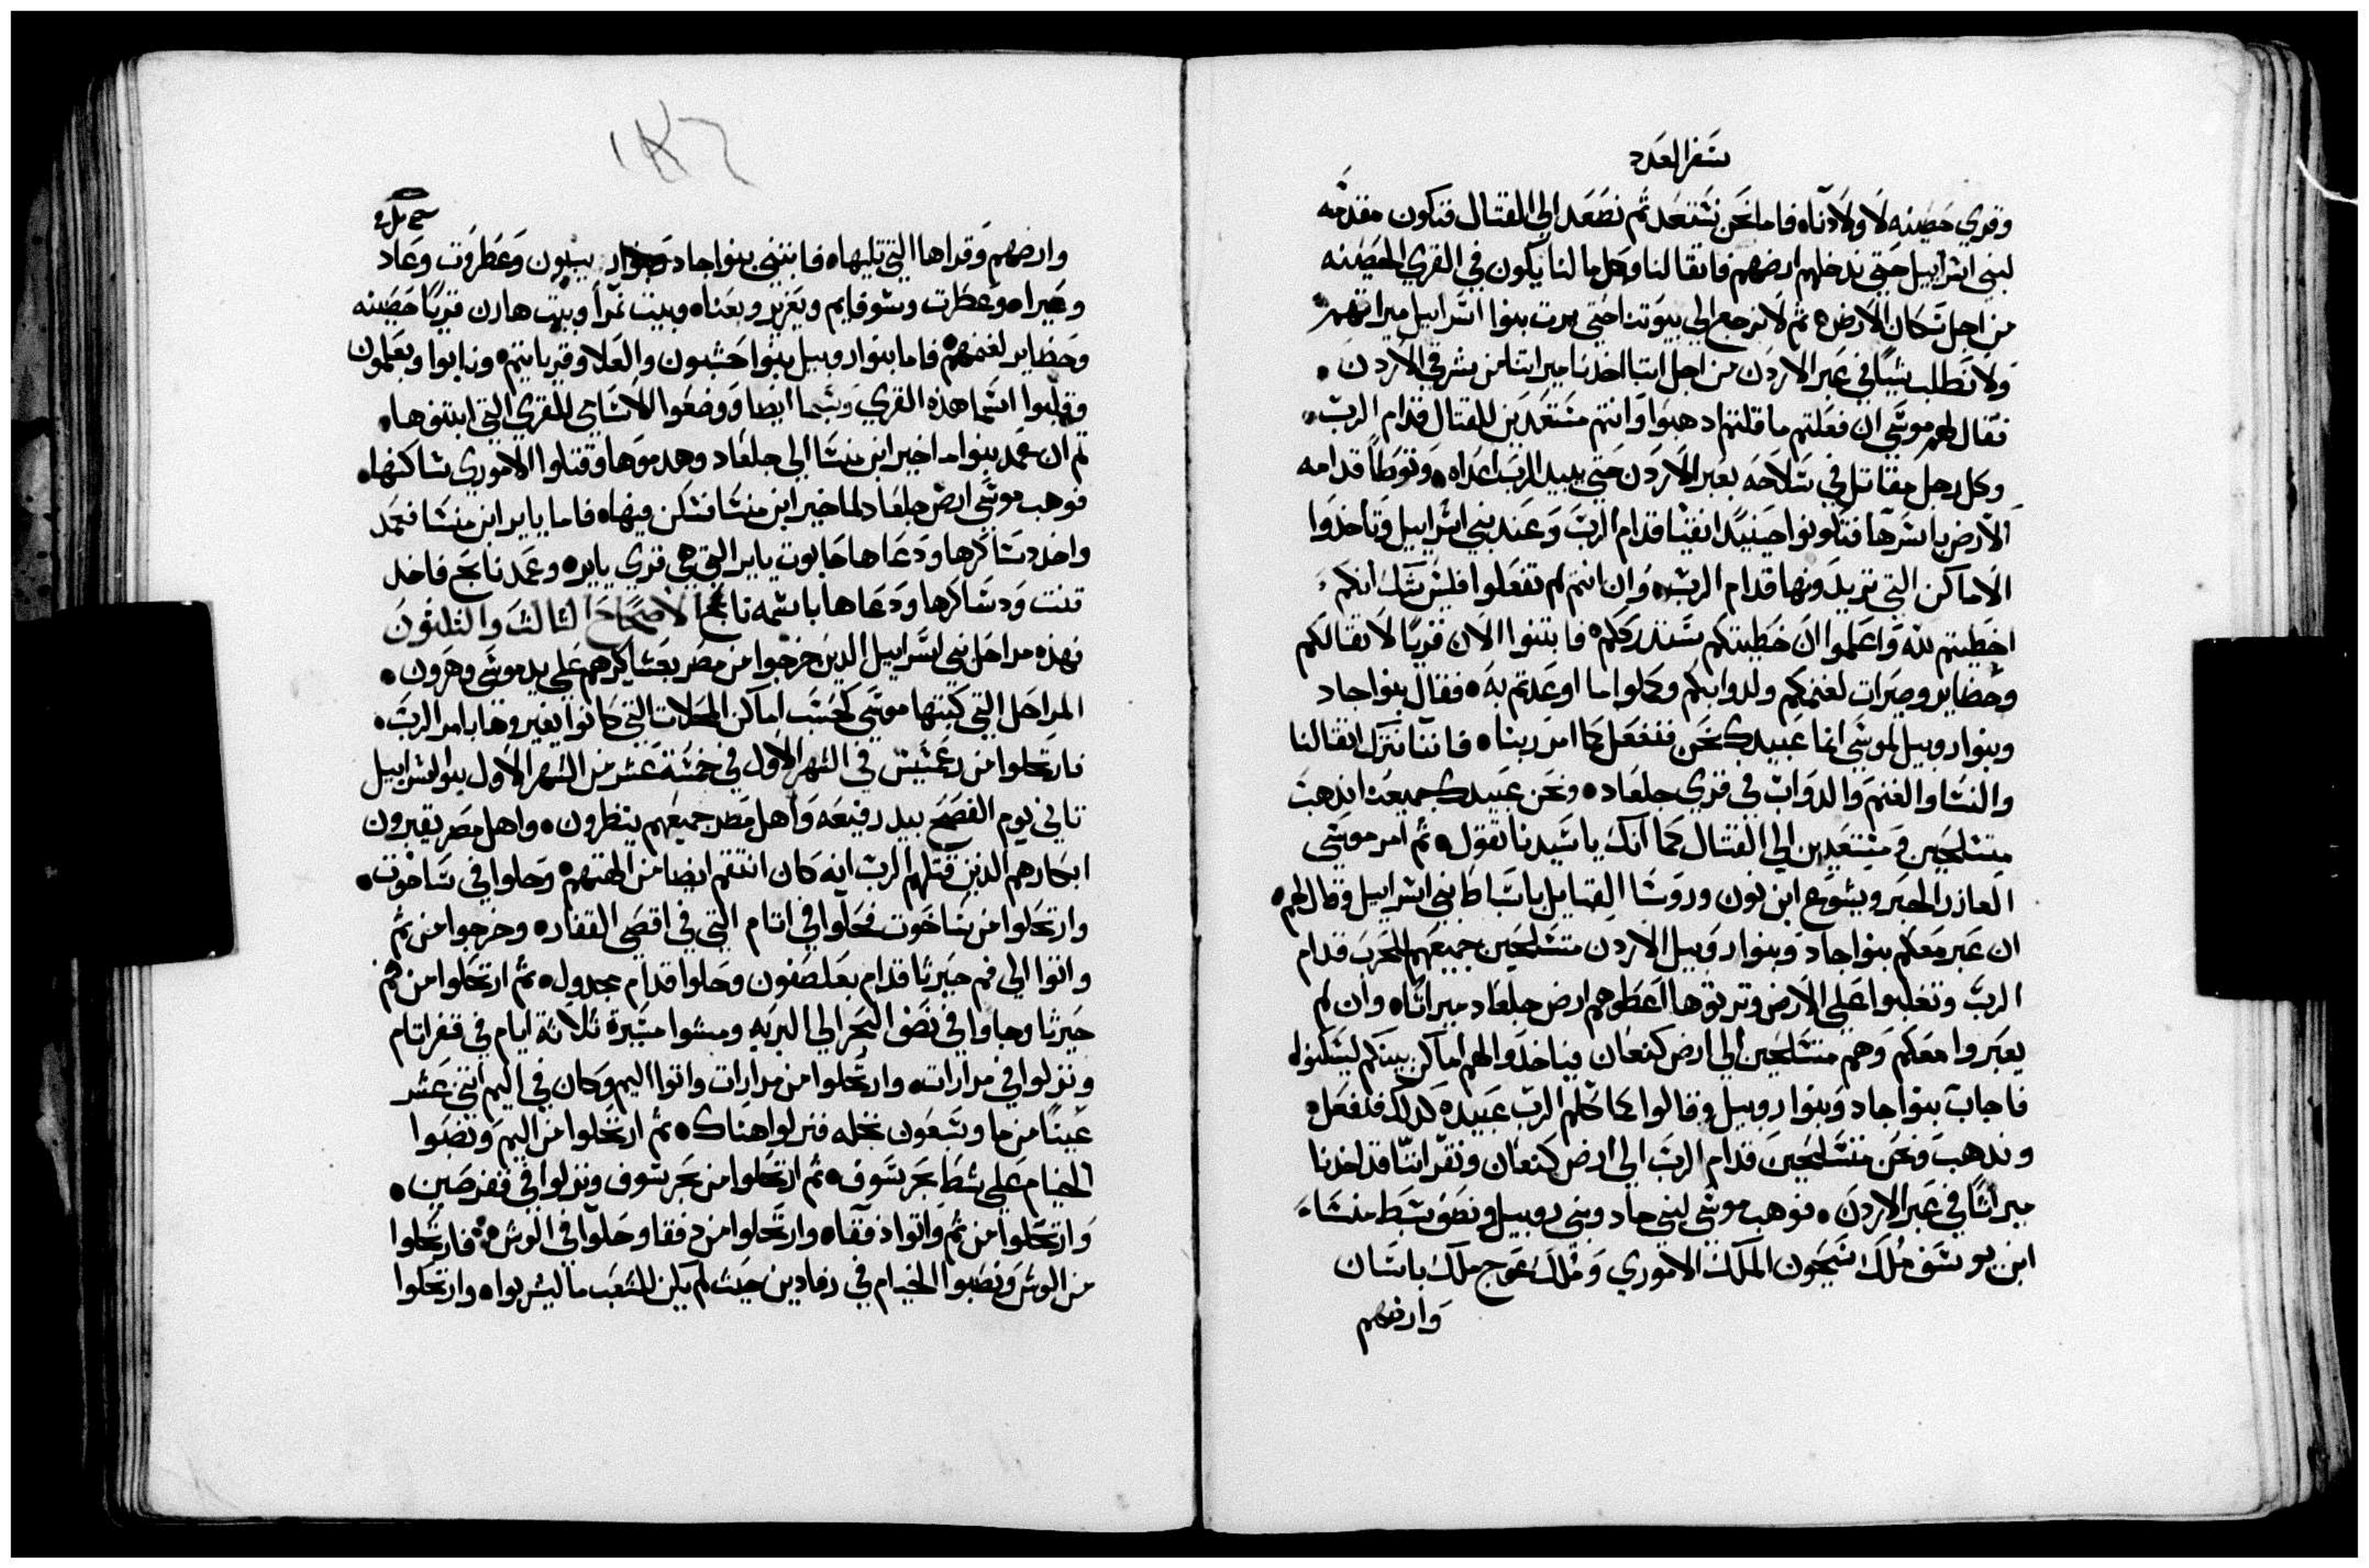 سفر العدد
وقري حصينه لاولادنا، فاما نحن نستعد ثم نصعد الي القتال فنكون مقدمه
لبني اسراييل حتي ندخلهم ارضهم فاثقالنا وكل مالنا يكون في القري الحصينه
من اجل سكان الارض، ثم لا نرجع الي بيوتنا حتي يرث بنوا اسراييل ميراثهم
ولا نطلب شيا في عبر الاردن من اجل اننا اخدنا ميراثنا من شرقي الاردن.
فقال لهم موسي ان فعلتم ما قلتم ادهبوا وانتم مستعدين للقتال قدام الرب.
وكل رجل مقاتل في سلاحه بعبر الاردن حتي يبيد الرب اعداه، وتوطا قدامه
الارض باسرها فتكونوا حينيد انقيا قدام الرب وعند بني اسراييل وتاخدوا
الاماكن التي تريدونها قدام الرب، وان انتم لم تفعلوا فليس شك انكم
اخطيتم لله واعلموا ان خطيتكم ستدرككم، فابتنوا الان قريا لاثقالكم
وحضاير وصيرات لغنمكم ولدوابكم وكملوا ما اوعدتم به، فقال بنوا جاد
وبنوا روبيل لموسي انما عبيدك نحن فنفعل كما امر ربنا، فاننا نترك اثقالنا
والنسا والغنم والدواب في قري جلعاد، ونحن عبيدك جميعنا ندهب
متسلحين ومستعدين الي القتال كما انك يا سيدنا تقول، ثم امر موسي
العازر الحبر ويشوع ابن نون وروسا القبايل باسباط بني اسراييل وقال لهم،
ان عبر معكم بنوا جاد وبنوا روبيل الاردن متسلحين جميعهم للحرب قدام
الرب وتغلبوا علي الارض وترتوها اعطوهم ارض جلعاد ميراثا، وان لم
يعبروا معكم وهم متسلحين الي ارض كنعان فياخدوا لهم اماكن بينكم ليسكنوا،
فاجاب بنوا جاد وبنوا روبيل وقالوا كما كلم الرب عبيده كدلك فنفعل،
وندهب ونحن متسلحين قدام الرب الي ارض كنعان ونقر اننا قد اخدنا
ميراثا في عبر الاردن، فوهب موسي لبني جاد وبني روبيل ونصف سبط منسا
ابن يوسف ملك سيحون الملك الاموري وملك عوج ملك باسان
وارضهم
١٨٦
وارضهم وقراها التي تليها، فابتني بنوا جاد بيبون وعطروت وعاد
وعيرا، وعطرت وشوفايم ويعزير وبعنا، وبيت نمرا وبيت هارن قريا حصينه
وحظاير لغنمهم، فاما بنوا روبيل بنوا حشبون والعلا وقرياتيم، ونابوا وبعلمون
وقلبوا اسما هذه القري وسبما ايضا ووضعوا الاسامي للقري التي ابتنوها،
ثم ان عمد بنوا ماخير ابن منسا الي جلعاد وهدموها وقتلوا الاموري ساكنها،
فوهب موسي ارض جلعاد لماخير ابن منسا فسكن فيها، فاما ياير ابن منسا فعمد
واخد دساكرها ودعاها حابوت ياير التي هي قري ياير، وعمد نابح فاخد
قنت ودساكرها ودعاها باسمه نابح الاصحاح الثالث والثلثون
فهذه مراحل بني اسراييل الدين خرجوا من مصر بعساكرهم علي يد موسي وهرون.
المراحل التي كتبها موسي كحسب اماكن المحلات التي كانوا يغيروها بامر الرب.
فارتحلوا من رعمسيس في الشهر الاول في خمسة عشر من الشهر الاول بنوا اسراييل
تاني يوم الفصح بيد رفيعه واهل مصر جميعهم ينظرون، واهل مصر يقبرون
ابكارهم الدين قتلهم الرب انه كان انتقم ايضا من الهتهم، وحلوا في ساخوت،
وارتحلوا من ساخوت فحلوا في اتام التي في اقصي القفار، وخرجوا من ثم
واتوا الي فم حيرتا قدام بعلصفون وحلوا قدام مجدول، ثم ارتحلوا من فم
حيرتا وجاوا في نصف البحر الي البريه ومشوا مسيرة ثلاثة ايام في قفر اتام
ونزلوا في مرارات، وارتحلوا من مرارات واتوا اليم وكان في اليم اتني عشر
عينا من ما وسبعون نخله فنزلوا هناك، ثم ارتحلوا من اليم ونصبوا
الخيام علي شط بحر سوف، ثم ارتحلوا من بحر سوف ونزلوا في قفر صين،
وارتحلوا من ثم واتوا دفقا، وارتحلوا من دفقا وحلوا في الوش، فارتحلوا
من الوش ونصبوا الخيام في رفادين حيث لم يكن للشعب ما ليشربوا، وارتحلوا